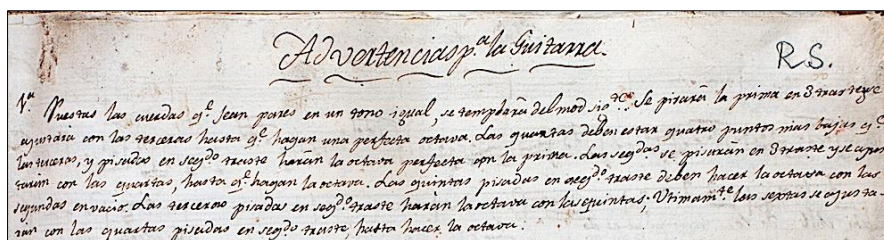 Advertencias p.ª la Guitarra.
R.S.
1ª Puestas las cuerdas q.e sean pares en un tono igual, se templará del mod sig.tes Se pisará la prima en 3 traste y se
ajustára con las terceras hasta q.e hagan una perfecta octava. Las quartas deben estar quatro puntos mas bajas q.e
las terceras, y pisadas en seg.do traste harán la octava perfecta con la prima. Las seg.das se pisarán en 3 traste y se ajus
tarán con las quartas, hasta q.e hagan la octava. Las quintas pisadas en seg.do traste deben hacer la octava con las
segundas en vacio. Las terceras pisadas en seg.do traste haran la octava con las quintas; Utimam.te las sextas se ajusta
ran con las quartas pisadas en seg.do traste, hasta hacer la octava.